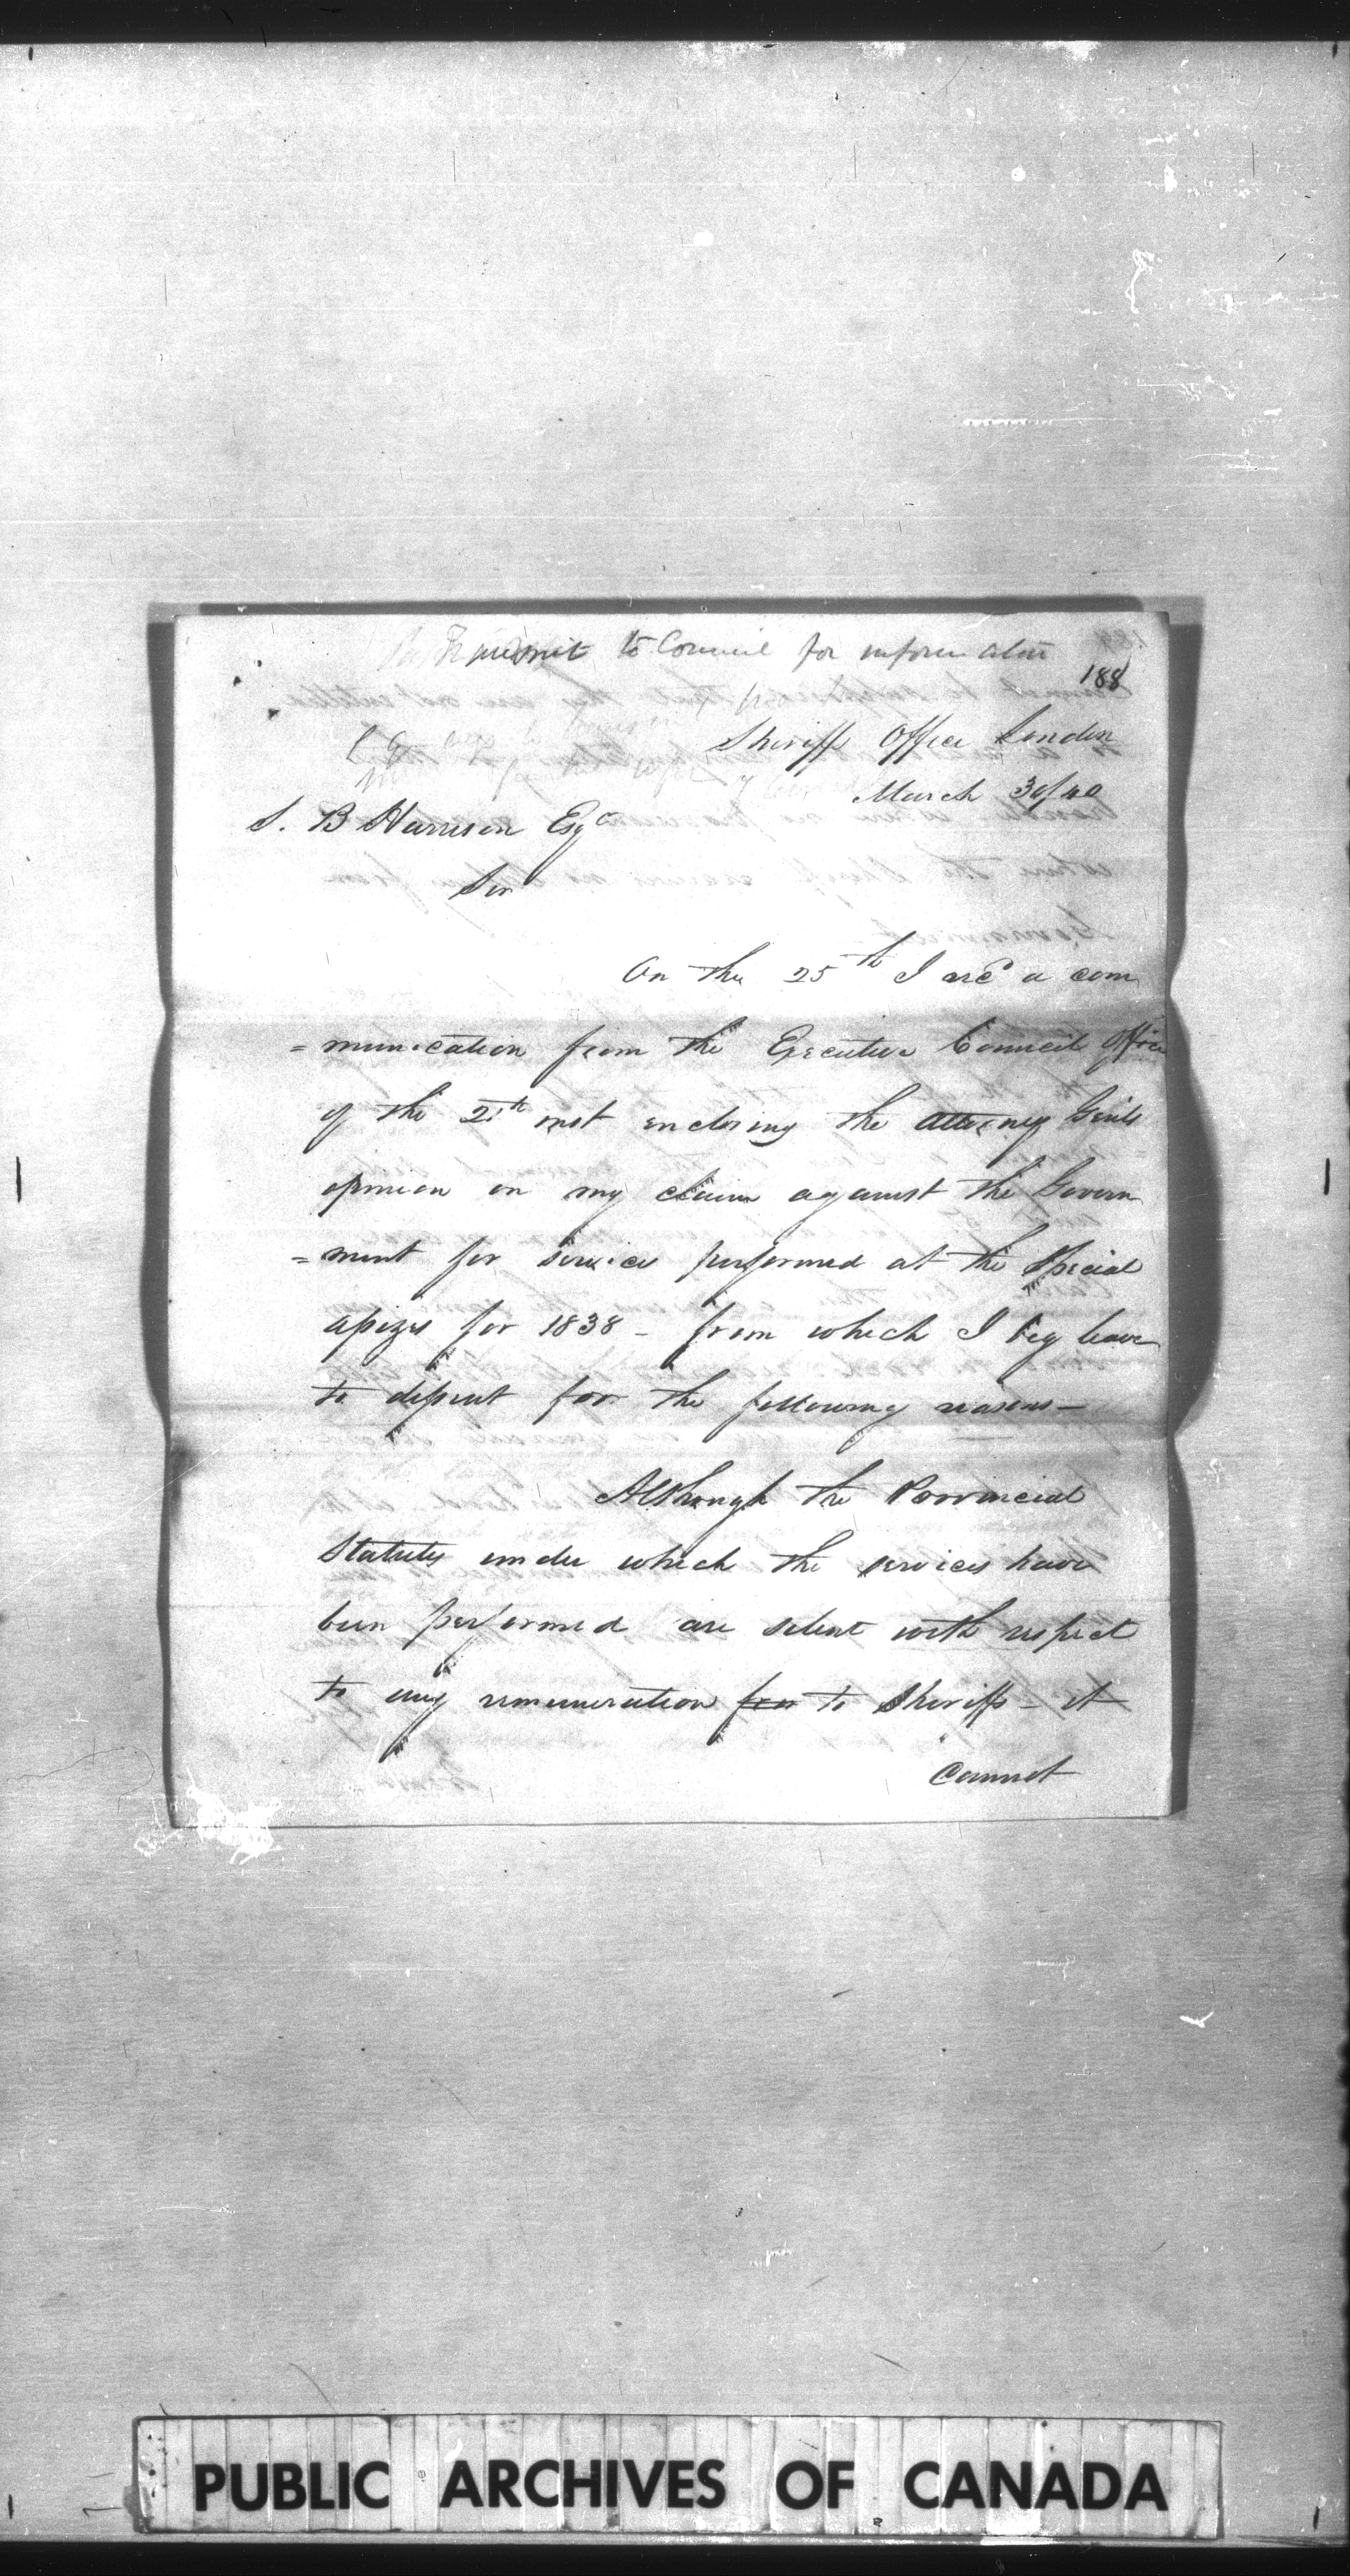 Transmit to Council for information
188
Sheriffs Office London
March 30/40
S. B Harrison Esqr
Sir
On the 25th I recd a com
=munication from the Executive Council Office
of the 21th inst enclosing the Attorney Genls
opinion on my claim against the Govern
=ment for services performed at the Special
assizes for 1838 - from which I beg leave
to dissent for the following reasons -
Although the Provincial
Statutes under which the services have
been performed are silent with respect
to any remuneration for to Sheriffs - it
cannot
PUBLIC ARCHIVES OF CANADA